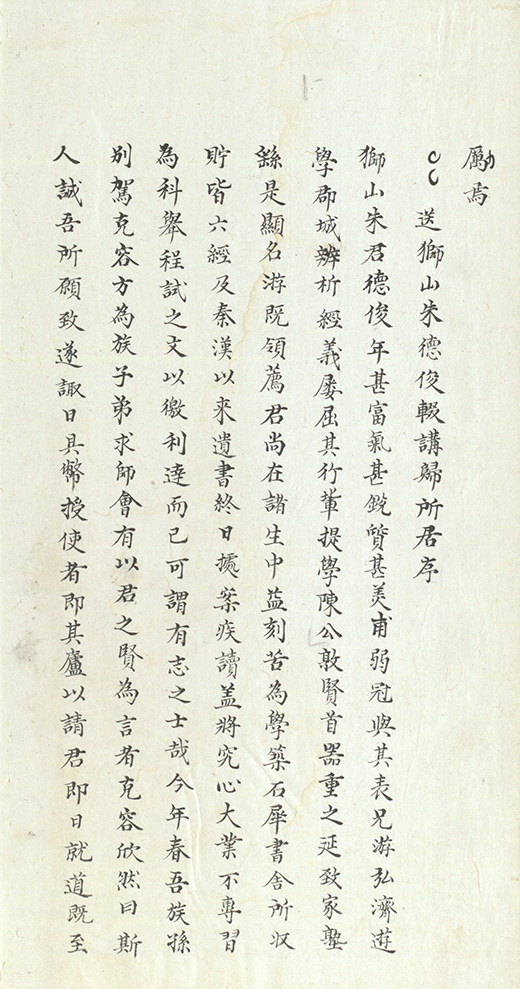 勵焉
送獅山朱德俊輟講歸所居序
獅山朱君德俊年甚富氣甚銳質甚美甫弱冠與其表兄游弘濟遊
學郡城辨析經義屢屈其行輩提學陳公敦賢首器重之延致家塾
繇是顯名游既領薦君尚在諸生中益刻苦為學築石犀書舍所収
貯皆六經及秦漢以来遺書終日據案疾讀盖將究心大業不專習
為科舉程試之文以徼利達而已可謂有志之士哉今年春吾族孫
別駕克容方為族子弟求師會有以君之賢為言者克容欣然曰斯
人誠吾所願致遂諏日具幣授使者即其廬以請君即日就道既至